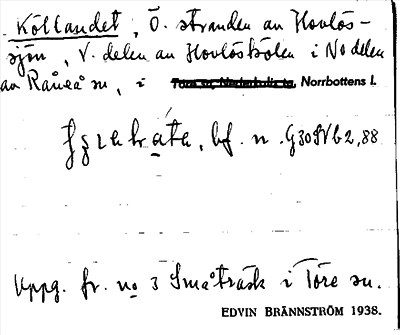 Köllandet, Ö. stranden av Hovlös-
sjön, V. delen av Hovlösheden i No delen
av Råneå sn, i Töre sn, Nederkalix tg, Norrbottens l.
bf. n. G30SVb2,88
Uppg. fr. no 3 Småträsk i Töre sn.
EDVIN BRÄNNSTRÖM 1938.